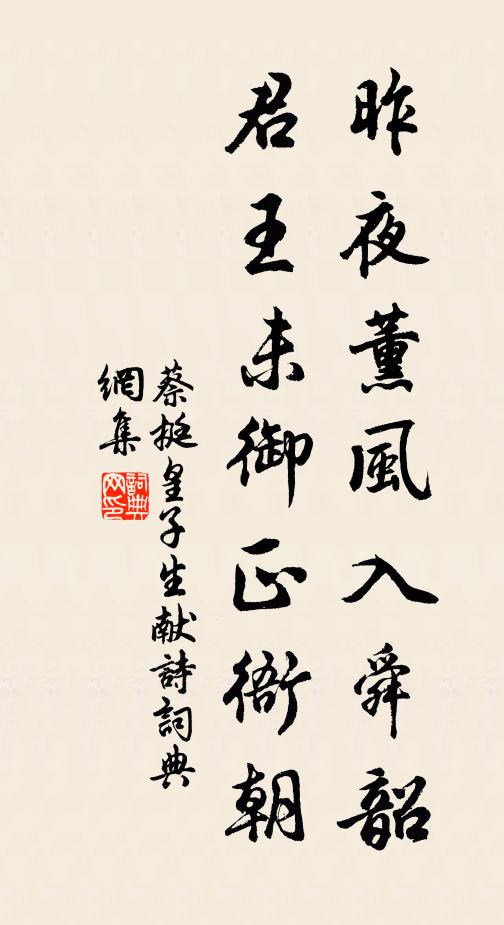 昨夜薰風入舜韶
君王未御正衙朝
蔡挺皇子生献詩詞典
網集
詞典
网印